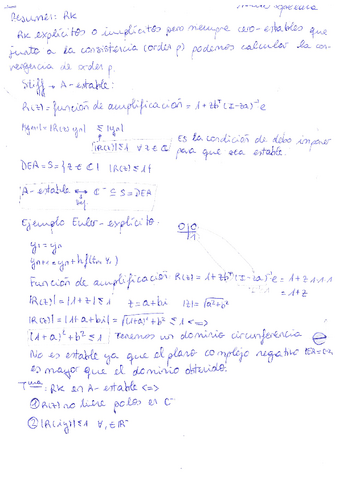 Resumen: RK
RK explícitos o implícitos pero siempre cero-estables que
junto a la consistencia (orden p) podemos calcular la con-
vergencia de orden p.
Stiff → A-estable:
R(z) = función de amplificación = 1 + zbᵀ(I-zA)⁻¹e
|yn+1| = |R(z) yn| ≤ |yn|
|R(z)| ≤ 1 ∀ z ∈ ℂ Es la condición que debo imponer
para que sea estable.
DEA = S = {z ∈ ℂ | |R(z)| ≤ 1}
A-estable ⟷ ℂ⁻ ⊆ S = DEA
Ejemplo Euler-explícito:
0|0
|1
y1 = yn
yn+1 = yn + h f(tn, Y1)
Función de amplificación R(z) = 1 + zbᵀ(I-zA)⁻¹e = 1 + z·1·1·1
= 1+z
|R(z)| = |1+z| ≤ 1 z = a+bi |z| = √a²+b²
|R(z)| = |1+a+bi| = √(1+a)²+b² ≤ 1 <=>
(1+a)²+b² ≤ 1 tenemos un dominio circunferencia
No es estable ya que el plano complejo negativo
es mayor que el dominio obtenido.
Tma: RK es A-estable <=>
① R(z) no tiene polos en ℂ⁻
② |R(iy)| ≤ 1 ∀ y ∈ ℝ